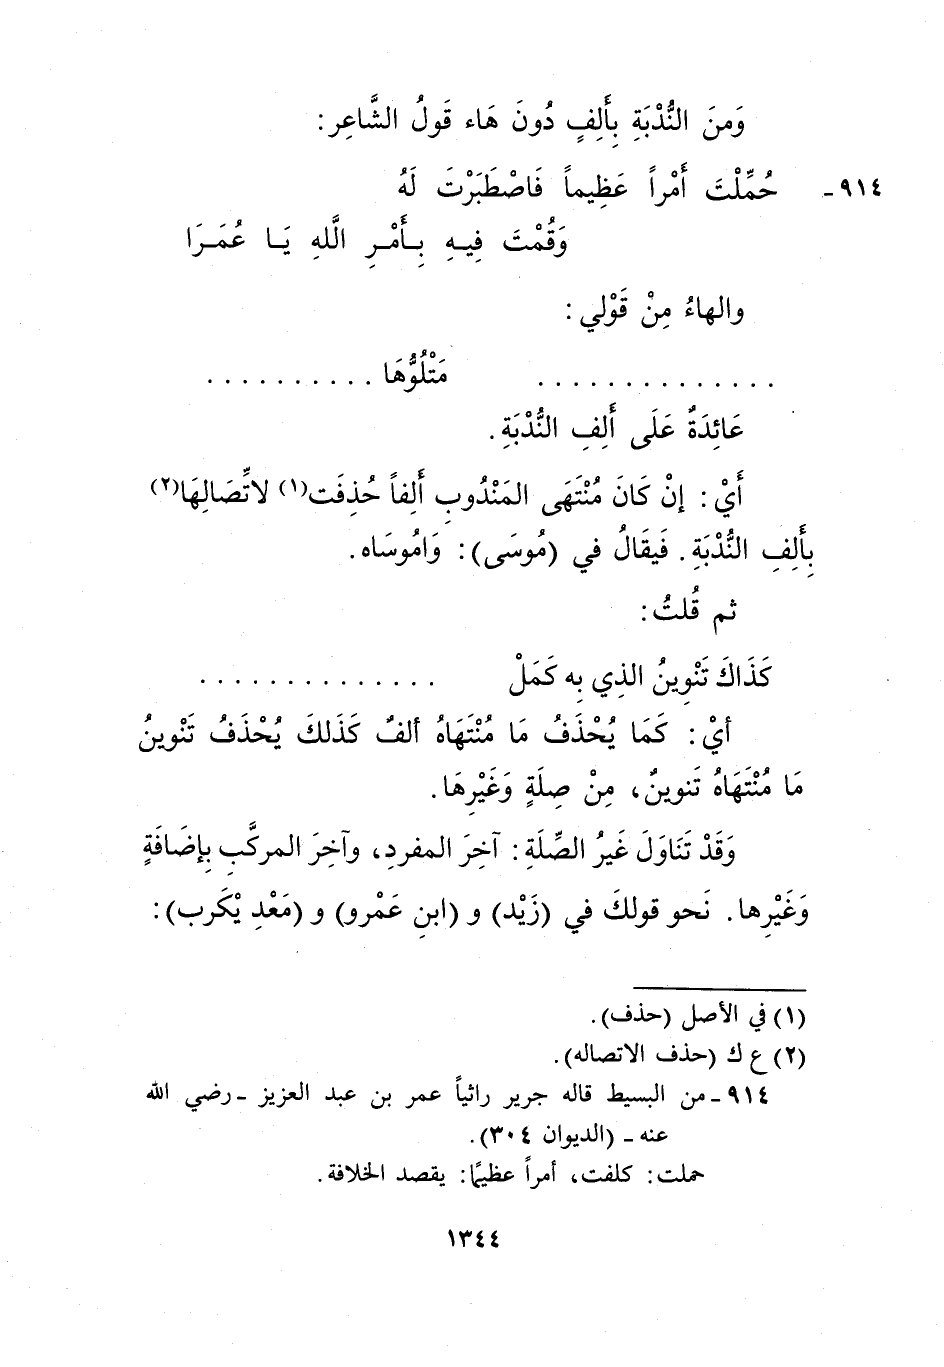 وَمنَ النُّدْبَةِ بِأَلِفٍ دُونَ هَاء قَولُ الشَّاعِر:
٩١٤ - حُمِّلْتَ أَمْراً عَظِيماً فَاصْطَبَرْتَ لَهُ
وَقُمْتَ فِيهِ بِأَمْرِ اللَّهِ يَا عُمَرَا
والهاءُ مِنْ قَوْلي:
. . . . . . . . . . . . . . مَتْلُوُّهَا . . . . . . . . . .
عَائِدَةٌ عَلَى أَلِفِ النُّدْبَةِ.
أَيْ: إنْ كَانَ مُنْتَهَى المَنْدُوبِ أَلفاً حُذِفَت(١) لاتِّصَالِهَا(٢)
بِأَلِفِ النُّدْبَةِ. فَيقَالُ في (مُوسَى): وَامُوسَاه.
ثم قُلتُ:
كَذَاكَ تَنْوِينُ الذِي بِه كَمَلْ . . . . . . . . . . . . . .
أيْ: كَمَا يُحْذَفُ مَا مُنْتَهَاهُ ألفٌ كَذَلكَ يُحْذَفُ تَنْوينُ
مَا مُنْتَهَاهُ تَنوينٌ، مِنْ صِلَةٍ وَغَيْرِهَا.
وَقَدْ تَنَاوَلَ غَيرُ الصِّلَةِ: آخِرَ المفردِ، وآخِرَ المركَّبِ بِإضَافَةٍ
وَغَيْرِها. نَحو قولكَ في (زَيْد) و (ابنِ عَمْرو) و (مَعْدِ يْكَرب):
(١) في الأصل (حذف).
(٢) ع ك (حذف الاتصاله).
٩١٤ - من البسيط قاله جرير راثياً عمر بن عبد العزيز - رضي الله
عنه - (الديوان ٣٠٤).
حملت: كلفت، أمراً عظيمًا: يقصد الخلافة.
١٣٤٤